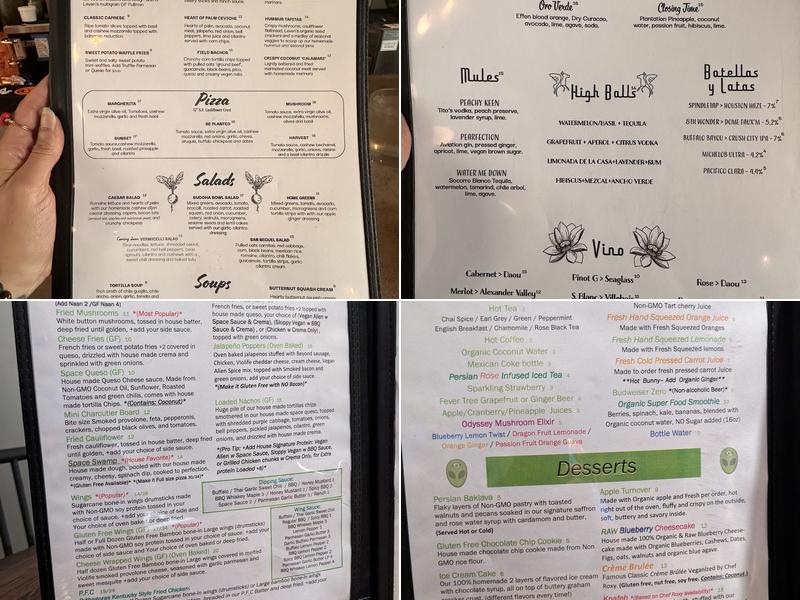 CLASSIC CAPRESE
Ripe tomato slices topped with basil
and cashew mozzarella topped with
balsamic reduction.
SWEET POTATO WAFFLE FRIES
Sweet and salty sweet potato
mini waffles. Add Truffle Parmesan
or Queso for
HEART OF PALM CEVICHE
Hearts of palm, avocado, coconut
meat, jalapeño, red onion, bell
peppers, lime juice and cilantro
FIELD NACHOS
Crunchy corn tortilla chips topped
with pulled oats 'ground beef',
guacamole, black beans, pico,
queso and creamy vegan ranch
HUMMUS TAPATAS
CRISPY COCONUT 'CALAMARI'
Lightly battered and fried
marinated coconut meat served
with homemade marinara
Pizza
12" G.F. Cauliflower Crust
MARGHERITA
Extra virgin olive oil, Tomatoes, cashew
mozzarella, garlic and fresh basil
BE PLANTED
Tomato sauce, extra virgin olive oil, cashew
mozzarella, red onions, garlic, chives,
arugula, buffalo chickpeas and dates
MUSHROOM
Tomato sauce, extra virgin olive oil, cashew
mozzarella, mushrooms,
olives and basil
SUNSET
Tomato sauce, cashew mozzarella,
garlic, fresh basil, roasted pineapple
and cilantro
HARVEST
Tomato sauce, cashew bechamel,
mozzarella, garlic, onions, raisins
and a basil cilantro drizzle
Salads
CAESAR SALAD
Romaine lettuce and hearts of palm
with our homemade cashew dijon
caesar dressing, capers, lemon
crunchy chickpeas
BUDDHA BOWL SALAD
Mixed greens, avocado, tomato,
broccoli, roasted carrot, roasted
squash, red onion, cucumber,
celery, walnuts, microgreens,
sesame seeds and lentil cakes
served with our ginger cilantro
dressing
HOME GREENS
Mixed greens, tomato, avocado,
cucumber, microgreens and corn
tortilla strips with with our apple
ginger dressing
Coming Soon VERMICELLI SALAD
SAN MIGUEL SALAD
Pulled oats carnitas, red cabbage,
corn, black beans, mexican rice,
romaine, cilantro, chili flakes,
guacamole, tortilla strips, garlic
cilantro cream
Soups
TORTILLA SOUP
BUTTERNUT SQUASH CREAM
Oro Verde 16
Effen blood orange, Dry Curacao,
avocado, lime, agave, soda.
Closing Time 15
Plantation Pineapple, coconut
water, passion fruit, hibiscus, lime.
Mules 15
PEACHY KEEN
Tito's vodka, peach preserve,
lavender syrup, lime.
PEARFECTION
Aviation gin, pressed ginger,
apricot, lime, vegan brown sugar.
WATER ME DOWN
Socorro Blanco Tequila,
watermelon, tamarind, chile arbol,
lime, agave.
High Balls
WATERMELON/BASIL + TEQUILA
GRAPEFRUIT + APEROL + CITRUS VODKA
LIMONADA DE LA CASA+LAVENDER+RUM
HIBISCUS+MEZCAL+ANCHO VERDE
Botellas
y Latas
SPINDLETAP > HOUSTON HAZE - 7%
8TH WONDER > DOME FAUX'M - 5.2%
BUFFALO BAYOU > CRUSH CITY IPA - 7%
MICHELOB ULTRA - 4.2%
PACIFICO CLARA - 4.4%
Vino
Cabernet > Daou
Merlot > Alexander Valley
Pinot G > Seaglass
Rose > Daou
(Add Naan 2 /GF Naan 4)
Fried Mushrooms *(Most Popular)*
White button mushrooms, tossed in house batter,
deep fried until golden, +add your side sauce.
Cheese Fries (GF) 10
French fries or sweet potato fries +2 covered in
queso, drizzled with house made crema and
sprinkled with green onions.
Space Queso (GF) 10
House made Queso Cheese sauce, Made from
Non-GMO Coconut Oil, Sunflower, Roasted
Tomatoes and green chilis, comes with house
made tortilla Chips. *(Contains: Coconut)*
Mini Charcuterie Board 12
Bite size Smoked provolone, feta, pepperonis,
crackers, chopped black olives, and tomatoes.
Fried Cauliflower 12
Fresh cauliflower, tossed in house batter, deep fried
until golden, +add your choice of side sauce.
Space Swamp *(House Favorite)* 14
House made dough, pooled with our house made
creamy, cheesy, spinach dip, cooked to perfection.
*(Gluten Free Available)* *(Make it Full size pizza
Wings *(Popular)* 14/28
Sugarcane bone-in wings drumsticks made
with Non-GMO soy protein tossed in your
choice of sauce, +add choice of side and
Your choice of oven baked or deep fried.
Gluten Free Wings *(Popular)*
Half or Full Dozen Gluten Free Bamboo bone-in Large wings (drumsticks)
made with Non-GMO soy protein tossed in your choice of sauce +add your
choice of side sauce and Your choice of Oven baked or deep fried.
Cheese Wrapped Wings (GF) (Oven Baked) 20
Half dozen Gluten Free Bamboo bone-in Large wings covered in melted
Violife smoked provolone cheese, seasoned with garlic parmesan and
sweet mesquite +add your choice of side sauce.
P.F.C 19/28
French fries, or sweet potato fries +2 topped with
house made queso, your choice of (Vegan Alien w
Space Sauce & Crema), (Sloppy Vegan w BBQ
Sauce & Crema), or (Chicken w Crema Only),
topped with green onions.
Jalapeño Poppers (Oven Baked)
Oven baked jalapenos stuffed with Beyond sausage,
Chicken, Violife cheddar cheese, cream cheese, Vegan
Alien Spice mix, topped with Smoked bacon and
green onions, add your choice of side sauce.
*(Make it Gluten Free with NO Bacon)*
Loaded Nachos (GF) 15
Huge pile of our house made tortillas chips
smothered in our house made space queso, topped
with shredded purple cabbage, tomatoes, onions,
bell peppers, pickled jalapenos, cilantro, green
onions and drizzled with house made crema.
*(Pro Tip: Add House Signature Protein: Vegan
Alien w Space Sauce, Sloppy Vegan w BBQ Sauce,
or Grilled Chicken chunks w Crema Only, for Extra
protein Loaded +6)*
Dipping Sauce:
Buffalo / Thai Garlic Sweet Chili / BBQ / Honey Mustard 2
BBQ Whiskey Maple 3 / Honey Mustard 2 / Spicy BBQ 2
Space Sauce 2 / Parmesan Garlic Butter 3 / Ranch 1
Wing Sauce:
Buffalo / Thai Garlic Sweet Chili
Regular BBQ / Spicy BBQ
BBQ Whiskey Maple
Lemon Pepper
Parmesan Garlic Butter
Hot Tea 3
Chai Spice / Earl Grey / Green / Peppermint
English Breakfast / Chamomile / Rose Black Tea
Hot Coffee
Organic Coconut Water
Mexican Coke bottle
Persian Rose Infused Iced Tea 4
Sparkling Strawberry 3
Fever Tree Grapefruit or Ginger Beer 4
Apple/Cranberry/Pineapple Juices 3
Odyssey Mushroom Elixir
Blueberry Lemon Twist / Dragon Fruit Lemonade /
Orange Ginger / Passion Fruit Orange Guava
Non-GMO Tart cherry Juice
Fresh Hand Squeezed Orange Juice
Made with Fresh Squeezed Oranges
Fresh Hand Squeezed Lemonade
Made with Fresh Squeezed lemons
Fresh Cold Pressed Carrot Juice
Made to order fresh pressed carrot Juice
**Hot Bunny- Add Organic Ginger**
Budweiser Zero *(Non-alcoholic Beer)*
Organic Super Food Smoothie
Berries, spinach, kale, bananas, blended with
Organic coconut water, NO Sugar added (16oz)
Bottle Water
Desserts
Persian Baklava 5
Flaky layers of Non-GMO pastry with toasted
walnuts and pecans soaked in our signature saffron
and rose water syrup with cardamom and butter.
(Served Hot or Cold)
Gluten Free Chocolate Chip Cookie 5
House made chocolate chip cookie made from Non
GMO rice flour.
Ice Cream Cake 6
Our 100% homemade 2 layers of flavored ice cream
with chocolate syrup, all on top of buttery graham
cracker crust. (different flavors every time!)
Apple Turnover 9
Made with Organic apple and Fresh per order, hot
right out of the oven, fluffy and crispy on the outside,
soft, buttery and savory inside.
RAW Blueberry Cheesecake 12
House made 100% Organic & Raw Blueberry Cheese-
cake made with Organic Blueberries, Cashews, Dates,
Figs, oats, walnuts and organic blue agave.
Crème Brulée 12
Famous Classic Crème Brulée Veganized By Chef
Roxy. (Gluten free, nut free, soy free. Contains: Coconut.)